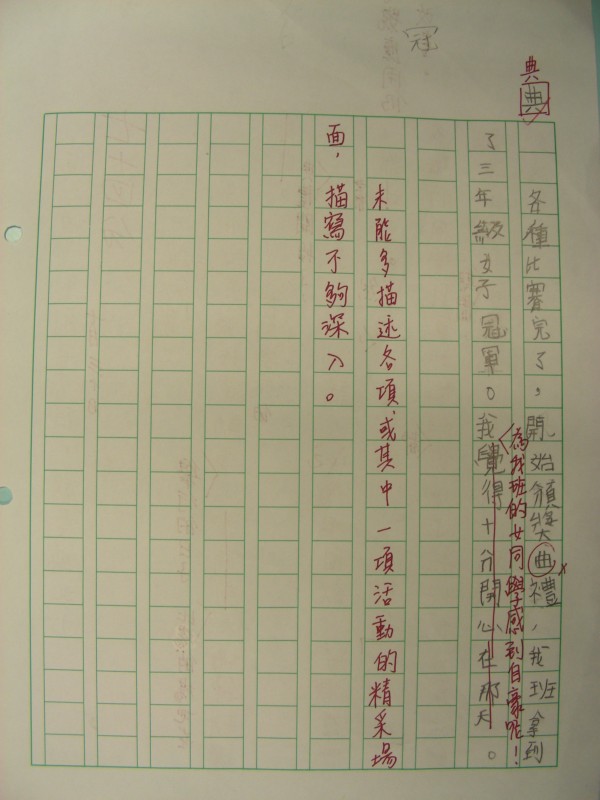 冠
典
典
各種比賽完了，開始頒獎典禮，我班拿到
為我班的女同學感到自豪呢！
了三年級女子冠軍。我覺得十分開心在那天。
未能多描述各項、或其中一項活動的精采場
面，描寫不夠深入。